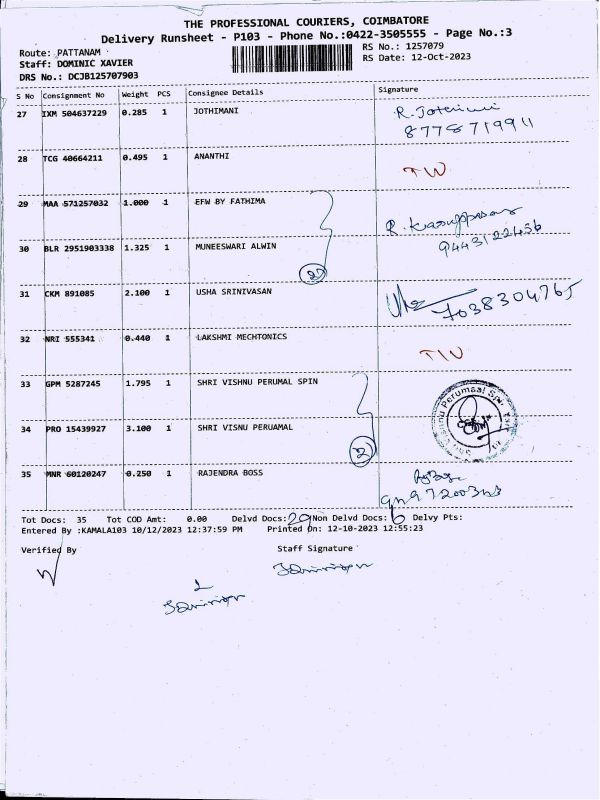 THE PROFESSIONAL COURIERS, COIMBATORE
Delivery Runsheet - P103 - Phone No.:0422-3505555 - Page No.:3
Route: PATTANAM
RS No.: 1257079
Staff: DOMINIC XAVIER
RS Date: 12-Oct-2023
DRS No.: DCJB125707903
S No Consignment No Weight PCS Consignee Details Signature
27 IXM 504637229 0.285 1 JOTHIMANI
28 TCG 40664211 0.495 1 ANANTHI TW
29 MAA 571257032 1.000 1 EFW BY FATHIMA
30 BLR 2951903338 1.325 1 MUNEESWARI ALWIN
9443122456
31 CKM 891085 2.100 1 USHA SRINIVASAN
7038304765
32 NRI 555341 0.440 1 LAKSHMI MECHTONICS TW
33 GPM 5287245 1.795 1 SHRI VISHNU PERUMAL SPIN
34 PRO 15439927 3.100 1 SHRI VISNU PERUAMAL
2
35 MNR 60120247 0.250 1 RAJENDRA BOSS
Tot Docs: 35 Tot COD Amt: 0.00 Delvd Docs: 29 Non Delvd Docs: 6 Delvy Pts:
Entered By :KAMALA103 10/12/2023 12:37:59 PM Printed On: 12-10-2023 12:55:23
Verified By Staff Signature